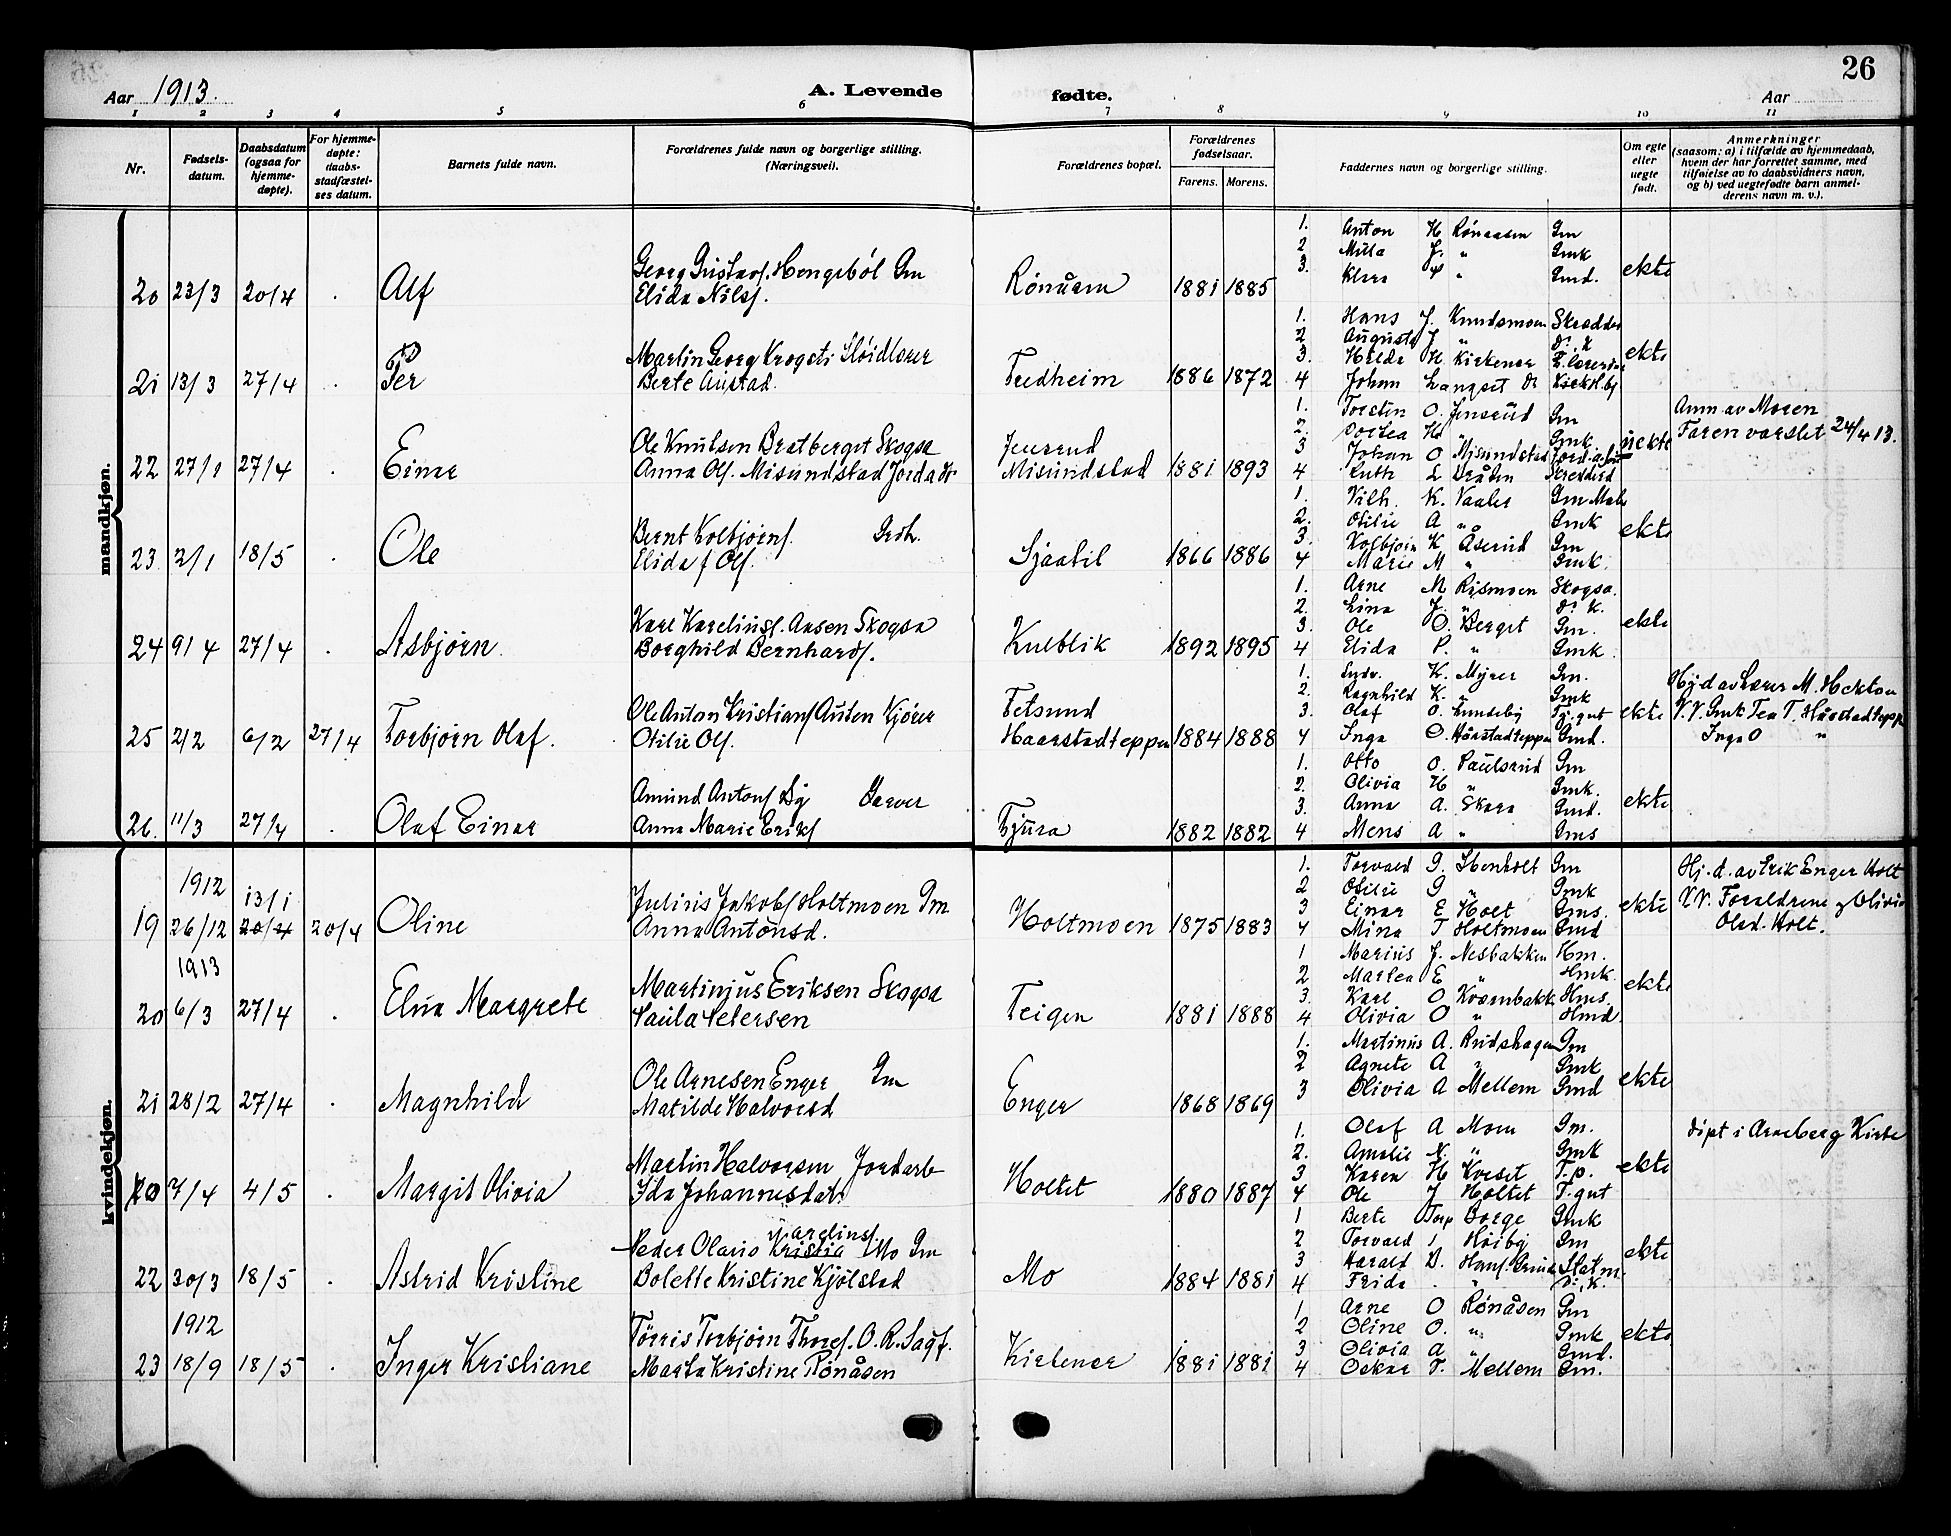 26
Aar 1913. A. Levende fødte. Aar
1 2 3 4 5 6 7 8 9 10 11
Nr. Fødsels-datum. Daabsdatum (ogsaa for hjemme-døpte). For hjemme-døpte: daabs-stadfæstel-ses datum. Barnets fulde navn. Forældrenes fulde navn og borgerlige stilling. (Næringsvei). Forældrenes bopæl. Forældrenes fødselsaar. Farens. Morens. Faddernes navn og borgerlige stilling. Om egte eller uegte født. Anmerkninger (saasom: a) i tilfælde av hjemmedaab, hvem der har forrettet samme, med tilføielse av to daabsvidners navn, og b) ved uegtefødte barn anmel-derens navn m. v.).
mandkjøn.
20 23/3 20/4 . Alf
Georg Gustavs. Hengebøl Gm
Elida Nilsf.
Rønåsen 1881 1885
1. Anton H Rønaasen Gm
2 Mila J. " Gmk
3. Klara " Gmd.
ekte
21 13/3 27/4 . Per
Martin Georg Krogsti Sløidlærer
Berte Austad.
Fredheim 1886 1872
1. Hans J. Knudsmoen Skrædder
2 Augusta J " Do. K
3. Hilda H Kirkener
4 Johan Langset
ekte
22 27/1 27/4 Einar
Ole Knutsen Bratberget Skogsa
Anna Ols. Misundstad Jorda dr
Jensrud
Misundstad 1881 1893
1. Torsten O. Jensrud Gm
2. Dortea H " Gmk.
3 Johan O Misundstad Jord.arb
4 Ruth L Bråten
uekte
Anm av Moren
Faren varslet 24/4 13.
23 2/1 18/5 . Ole
Bernt Kolbjørns.
Elida f Ols.
Sjaatil 1866 1886
1. Vilh. K. Vaaler Gm
2. Otilie A " Gmk
3. Kolbjørn K Åserud Gm
4 Marie M " Gmk.
ekte
24 9/4 27/4 . Asbjørn.
Karl Kareliusf. Aasen Skogsa
Borghild Bernhards.
Kulblik 1892 1895
1. Arne M Rismoen Skogsa.
2. Lina J. " do. K.
3. Ole O. Berget Gm.
4 Elida P. " Gmk.
ekte
25 2/2 6/2 27/4 Torbjørn Olaf.
Ole Anton Kristiansf Auten Kjører
Otilie Ols.
Fetsund
Haarstadteppen 1884 1888
1. K. Myrer Gm.
2. Ragnhild K. " Gmk
3. Olaf O. Lundeby Tj.gut
4 Inga O. Hårstadteppen Gmd.
ekte
Hj d av Lærer M. Hekton
V.V. Gmk Tea T. Hårstadtepp
Inga O "
26. 11/3 27/4 . Olaf Einar
Amund Antons Lie Garver
Anna Marie Eriks
Fjura 1882 1882
1. Otto O. Paulsrud Gm
2. Olivia H " Gmk.
3. Anna A. Skara Gmd.
4 Mens A " Gms
ekte
kvindekjøn.
1912
13/1
19 26/12 20/4 20/4 Oline
Julius Jakobs Holtmoen Gm
Anna Antonsd.
Holtmoen 1875 1883
1. Torvald G. Stenholt Gm
2 Otilie G " Gmk
3 Einar E Holt Gms.
4 Mina T Holtmoen Gmd
ekte
Hj. d. av Erik Enger Holt
V.V. Forældrene og Olivia
Olsd. Holt.
1913
20 6/3 27/4 . Elna Margrete
Martinius Eriksen Skogsa
Paula Petersen
Teigen 1881 1888
1 Marius J. Nesbakken Hm.
2 Martea E " Hmk
3. Karl O Kvernbakk Hms.
4 Olivia O " Hmd.
ekte
21 28/2 27/4 . Magnhild
Ole Arnesen Enger Gm
Matilde Halvorsd
Enger 1868 1869
1. Martinus A. Rudshagen Gm
2 Agnete A " Gmk
3 Olivia A Mellem Gmd
ekte
20 7/4 4/5 . Margit Olivia
Martin Halvorsen Jordarb
Ida Johannesdatr
Holtet 1880 1887
1. Olaf A Moen Gm.
2. Amalie N. " Gmk
3 Karen H Kveset T.p.
4 Ole J Holtet T.gut
ekte
døpt i Arneberg Kirke
22 30/3 18/5 . Astrid Kristine
Karelius.
Peder Olaus Kristia Mo Gm
Bolette Kristine Kjølstad
Mo 1884 1881
1 Berte Torp Borge Gmk
2 Torvald Høiby Gm
3 Harald D. Stat m.
4 Frida . " do. K.
ekte
1912
23 18/9 18/5 . Inger Kristiane
Tørris Torbjørn Thoresf. O.R. Sagf.
Marta Kristine Rønåsen
Kirkener 1881 1881
1. Arne O Rønåsen Gm
2 Oline O. " Gmk
3 Olivia A " Gmd.
4 Oskar P. Mellem Gm.
ekte